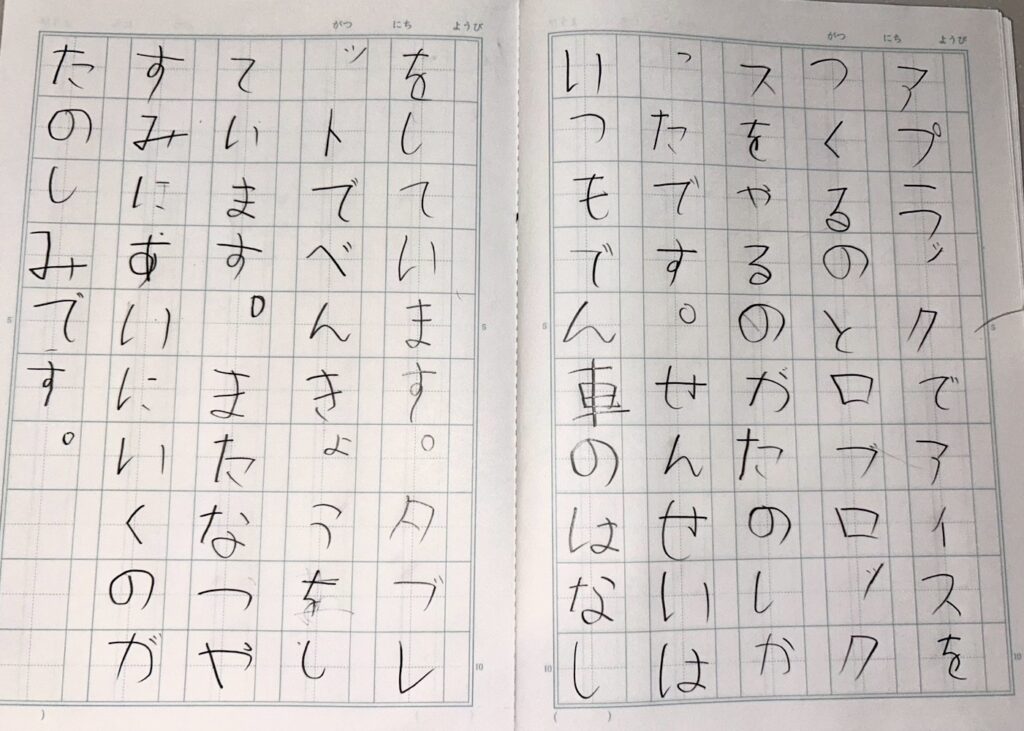 がつ にち ようび
アプラックでアイスを
つくるのとロブロック
スをやるのがたのしか
ったです。せんせいは
いつもでん車のはなし
5
10
がつ にち ようび
をしています。タブレ
ットでべんきょうをし
ています。またなつや
すみにあいにいくのが
たのしみです。
5
10